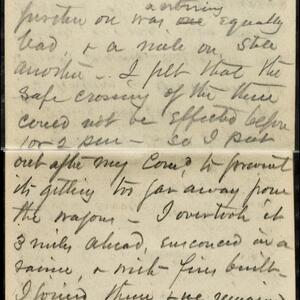 further on was equally
bad, & a mile on, still
another. I felt that the
safe crossing of the three
could not be effected before
1 or 2 p.m. — so I put
out after my Com'd, to prevent
its getting too far away from
the wagons — I overtook it
3 miles ahead, ensconced in a
ravine, & with fires built —
I joined them & we